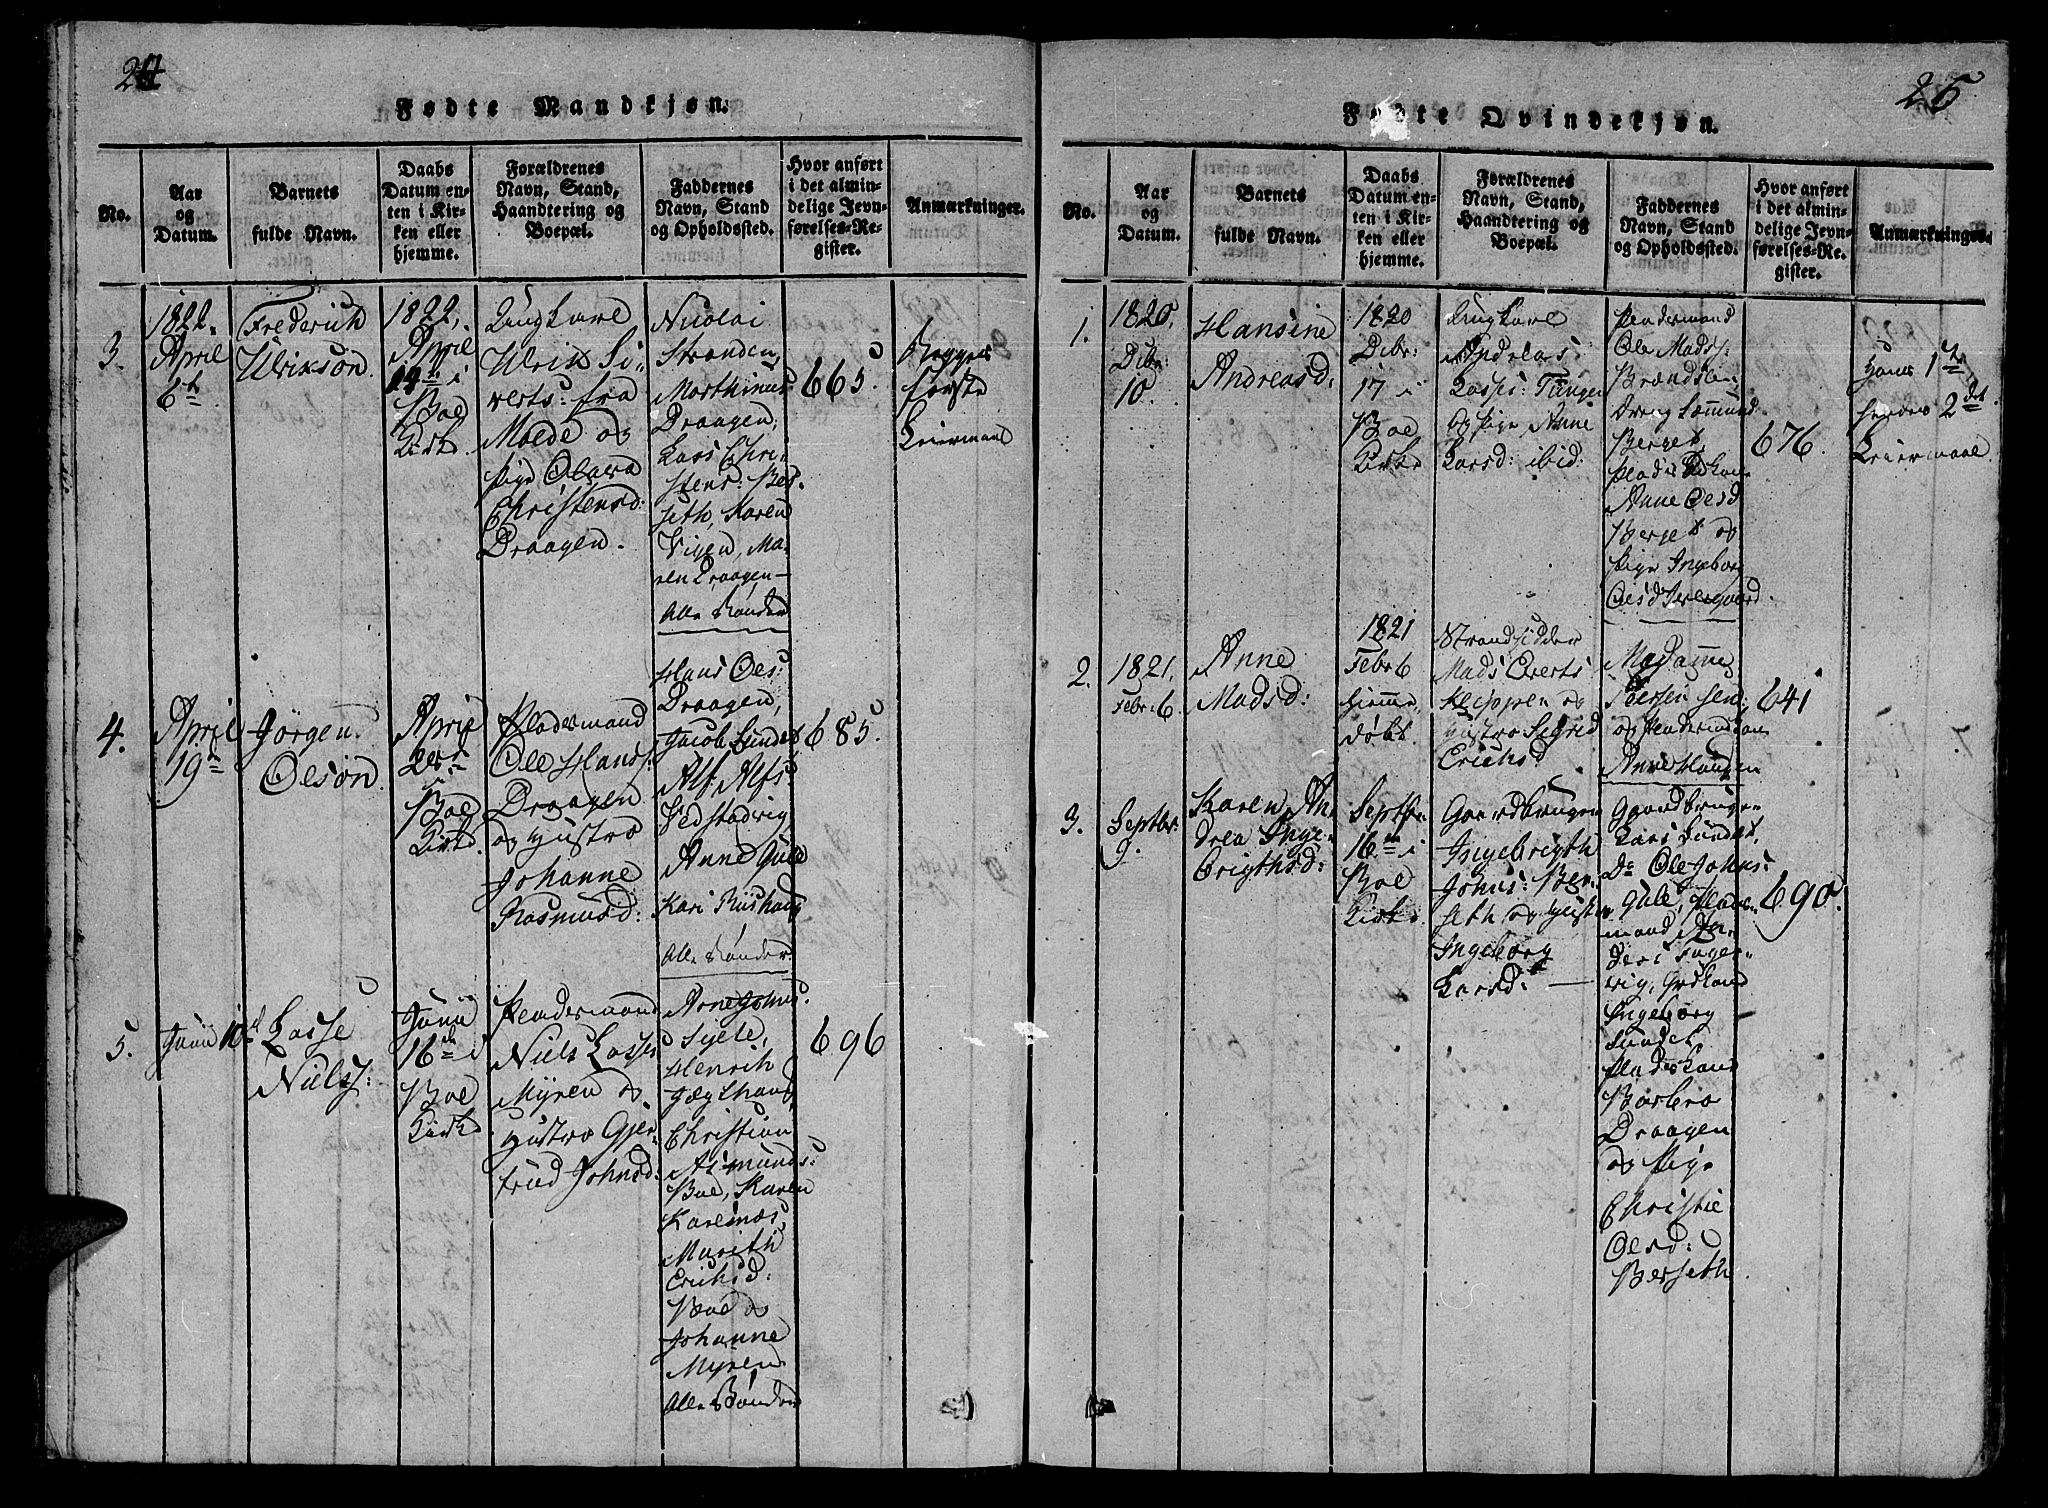 24
Fødte Mandkjøn.
No.
Aar
og
Datum.
Barnets
fulde Navn.
Daabs
Datum en-
ten i Kir-
ken eller
hjemme.
Forældrenes
Navn, Stand,
Haandtering og
Boepæl.
Faddernes
Navn, Stand
og Opholdssted.
Hvor anført
i det almin-
delige Jevn-
førelses-Re-
gister.
Anmærkninger.
3.
1822.
April
6te
Frederich
Ulriksøn.
1822,
April
14de i
Boe
Kirke
Ungkarl
Ulrik Si-
verts: fra
Molde og
Pige Olava
Christensd:
Draagen.
Nicolai
Stranden,
Morthinus
Draagen,
Lars Chri-
stens. Ber-
seth, Karen
Vigen, Ma-
ren Draagen—
Alle Bønder
665.
Begges
første
Leiermaal
4.
April
19de
Jörgen
Olsøn.
April
28de
i
Boe
Kirke.
Pladsmand
Ole Hans:
Draagen
og Hustro
Johanne
Rasmusd:
Hans Oles:
Draagen,
Jacob Sundet
Alf Alfs:
Vedstadvig
Anne Gule
Kari Riishaug
Alle Bønder
685.
5.
Junii 10de
Lasse
Niels:
Junii
16de i
Boe
Kirke
Pladsmand
Niels Lasses:
Myren og
Hustro Gjer-
trud Johnsd:
Arne Johns:
Henrich
Christian
Asmunds:
Boe, Karen
Karlsnæs,
Marith
Erichsd:
Boe og
Johanne
Myren
Alle Bønder
696
25
Fødte Qvindekjøn.
No.
Aar
og
Datum.
Barnets
fulde Navn.
Daabs
Datum en-
ten i Kir-
ken eller
hjemme.
Forældrenes
Navn, Stand,
Haandtering og
Boepæl.
Faddernes
Navn, Stand
og Opholdssted.
Hvor anført
i det almin-
delige Jevn-
førelses-Re-
gister.
Anmærkninger.
1.
1820,
Dcbr:
10.
Hansine
Andreasd:
1820
Dcbr:
17 i
Boe
Kirke
Ungkarl
Andreas
Lasses: Tangen
og Pige Anne
Larsd: ibid:
Pladsmand
Ole Mads:
Dreng
Berget
Anne Olesd
Berget og
Pige Ingeborg
Olesd
676.
Hans 1ste
hendes 2det
Leiermaal.
2.
1821.
Febr: 6
Anne
Madsd:
1821
Febr 6
hjemme
døbt.
Strandsidder
Mads Everts
Klippen og
Hustro Sigrid
Erichsd:
Madamme
og
Anne Haugen
641
3.
Septbr:
9.
Karen An-
drea Inge-
brigthsd:
Septbr:
16de i
Boe
Kirke
Gaardbruger
Ingebrigth
Johns: Ber-
seth og Hustro
Ingeborg
Larsd: —
Gaardbruger
Lars Sundet,
Do Ole Johns:
Gule, Plads-
mand An-
ders Fager-
vig,
Ingeborg
Sundet
Barbera
Draagen
og Pige
Christie
Olesd:
Berseth.
690.